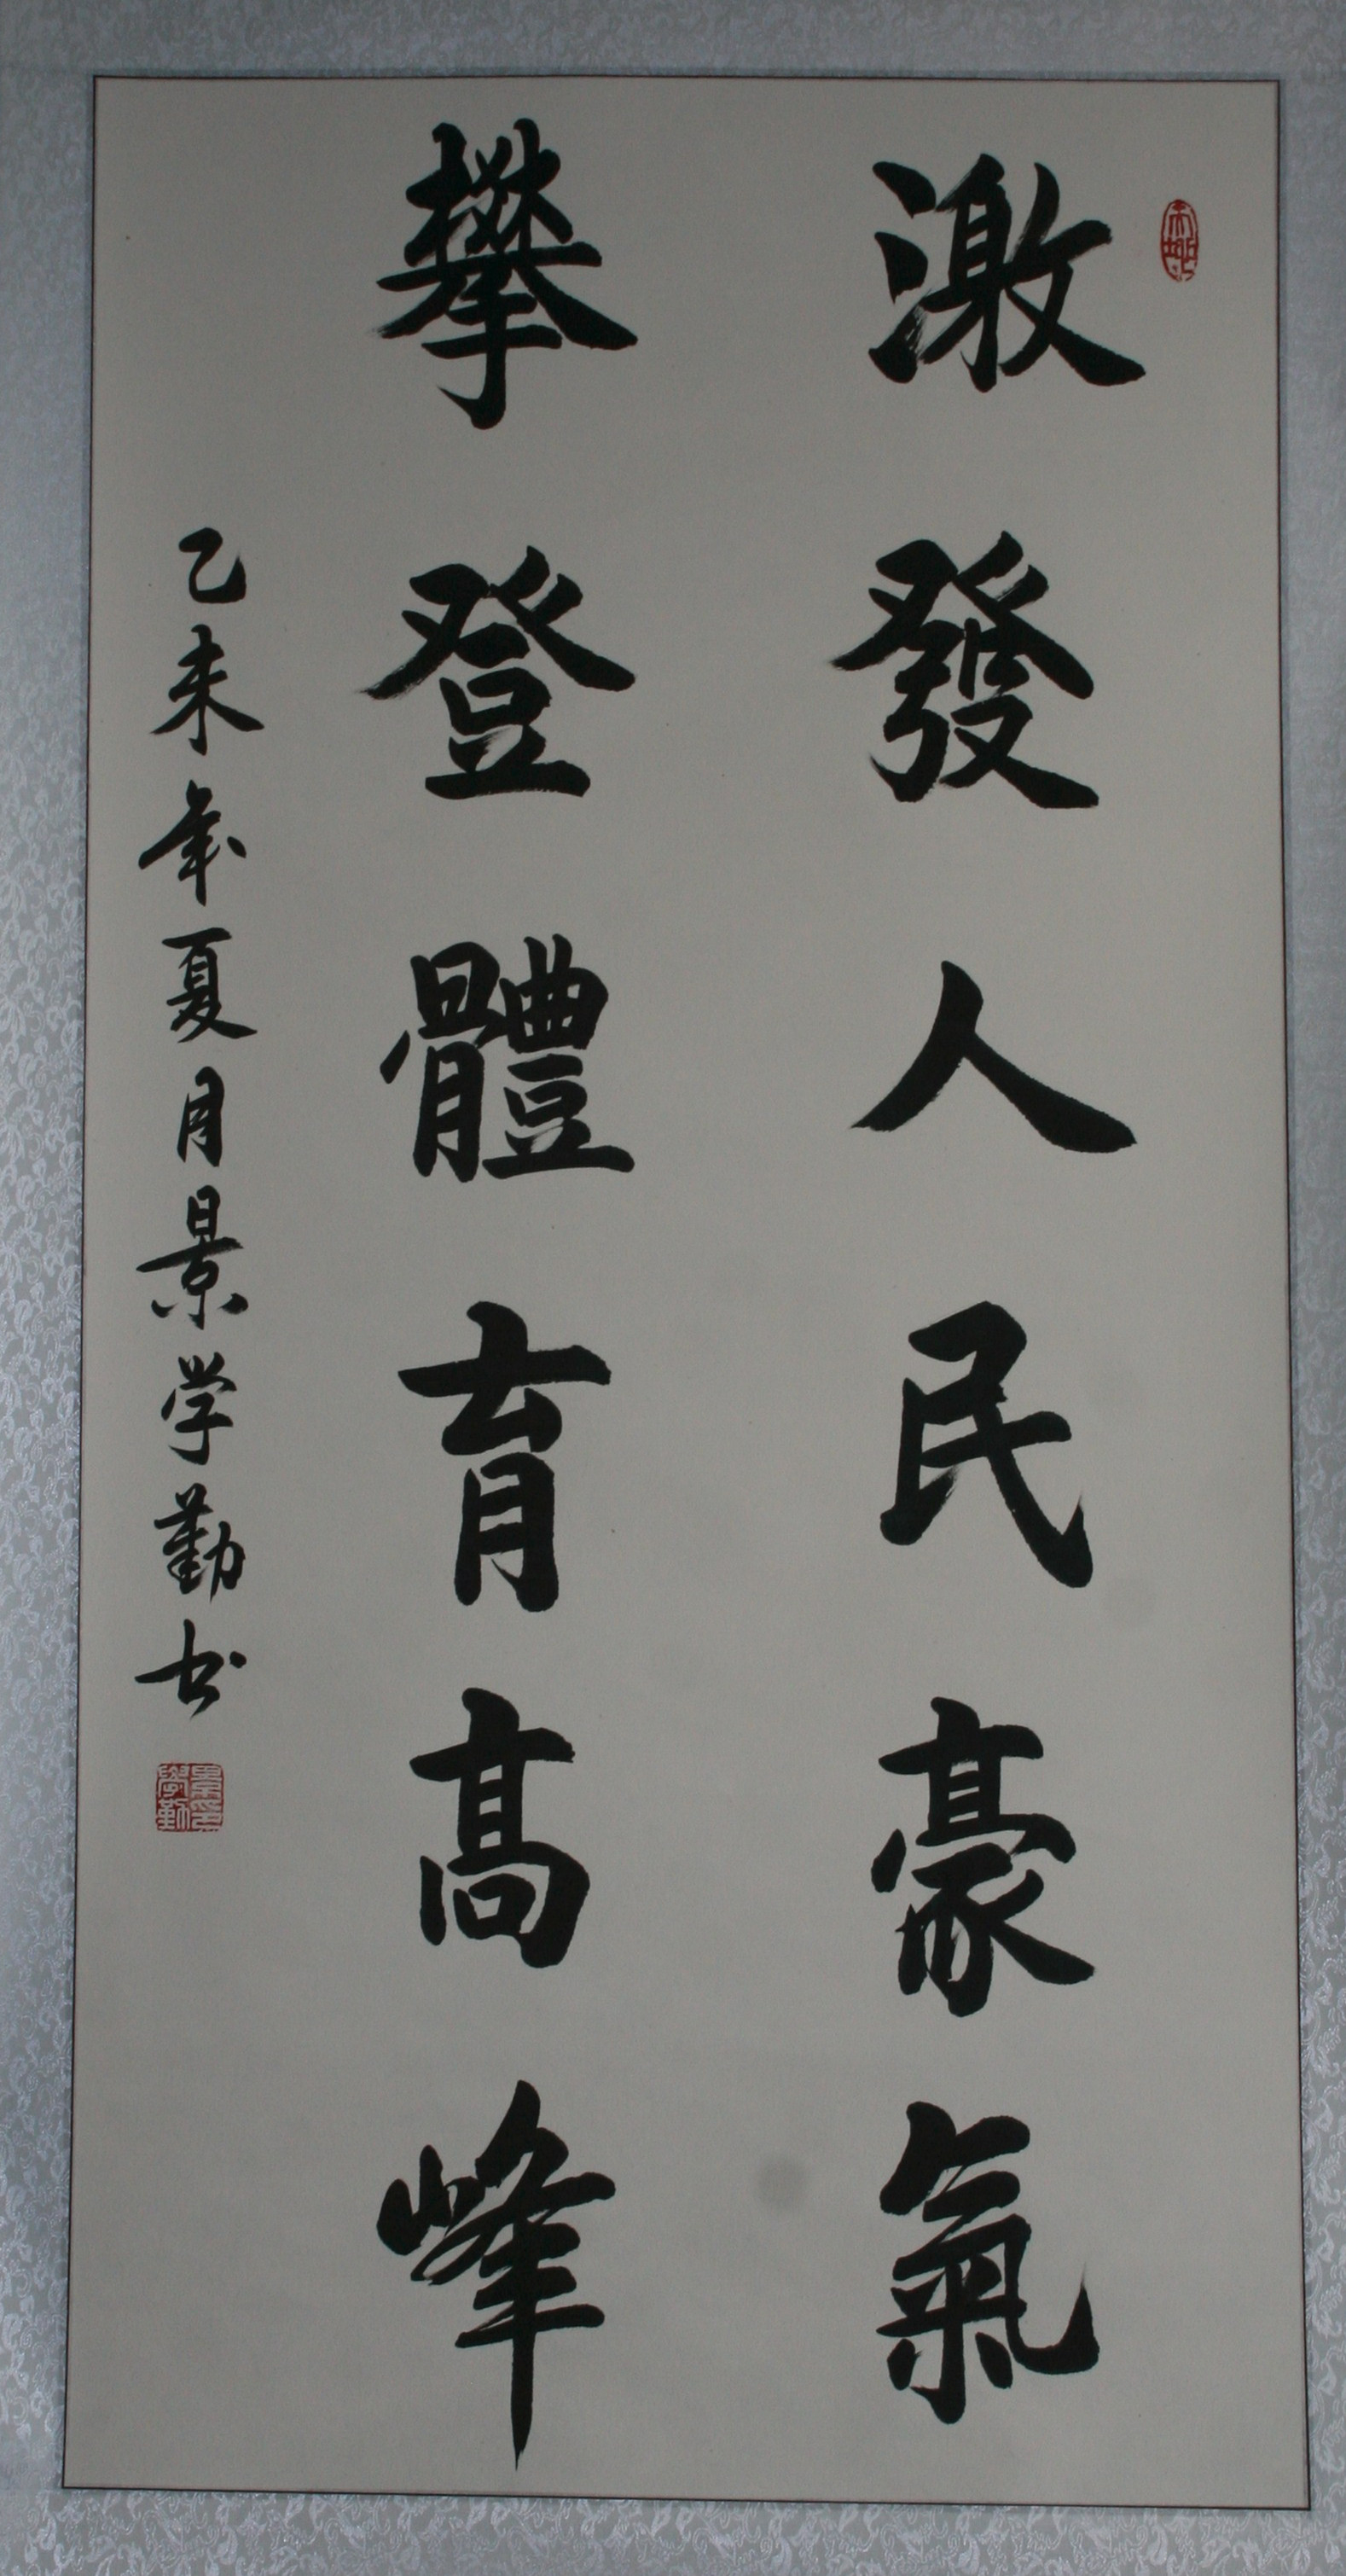 激發人民豪氣
攀登體育高峰
乙未年夏月景学勤书
景印學勤